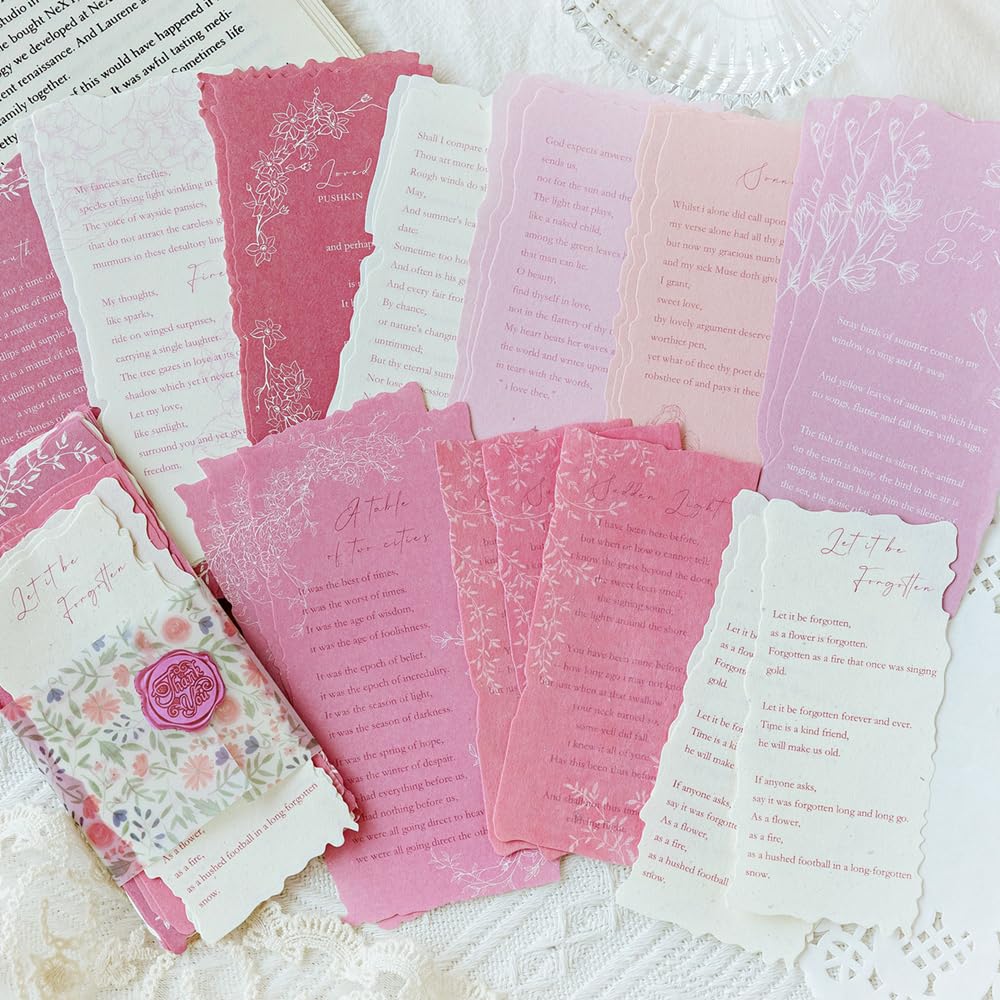 studio in
bought NeXT
ogy we developed at NeX
ent renaissance. And Laurene an
family together.
of this would have happened if
It was awful tasting medi-
Sometimes life
not a time of
a state of mind
a matter of rosy
and supple k
is a matter of the
a quality of the imag
a vigor of the em
the freshness of
My fancies are fireflies,
specks of living light winkling in
The voice of wayside pansies,
that do not attract the careless g
murmurs in these desultory lines
Fire
My thoughts,
like sparks,
ride on winged surprises,
carrying a single laughter.
The tree gazes in love at its
shadow which yet it never
Let my love,
like sunlight,
surround you and yet give
freedom.
Loved
PUSHKIN
and perhap
is
It
Shall I compare
Thou art more
Rough winds do sh
May,
And summer's lea
date:
Sometime too ho
And often is his g
And every fair from
By chance,
or nature's changin
untrimmed;
But thy eternal sum
Nor lose
God expects answers
sends us,
not for the sun and the
The light that plays,
like a naked child,
among the green leaves
that man can lie.
O beauty,
find thyself in love,
not in the flattery of thy
My heart beats her waves
the world and writes upon
in tears with the words,
"i love thee,"
Sonn
Whilst i alone did call upon
my verse alone had all thy g
but now my gracious numb
and my sick Muse doth give
I grant,
sweet love,
thy lovely argument deserve
worthier pen,
yet what of thee thy poet do
robsthee of and pays it thee
Stray
Birds
Stray birds of summer come to my
window to sing and fly away
And yellow leaves of autumn, which have
no songs, flutter and fall there with a sign.
The fish in the water is silent, the animal
on the earth is noisy, the bird in the air is
singing, but man has in him the silence of
the sea, the noise of
Let it be
Forgotten
Thank
You
As a flower,
as a fire,
as a hushed football in a long-forgotten
snow.
A table
of two cities
It was the best of times,
It was the worst of times.
It was the age of wisdom,
It was the age of foolishness,
It was the epoch of belief,
it was the epoch of incredulity.
It was the season of light,
it was the season of darkness.
It was the spring of hope,
it was the winter of despair.
had everything before us,
had nothing before us,
we were all going direct to hea
we were all going direct the oth
Sudden Light
I have been here before,
but when or how o cannot tell:
i know the grass beyond the door,
the sweet keen smell,
the sighing sound,
the lights around the shore.
You have been mine before,
how long ago i may not know
but just when at that swallow
your neck turned so,
some veil did fall
I knew it all of yore.
Has this been thus before
Let it b
as a flo
Forgott
gold.
Let it be
Time is a k
he will ma
If anyone asks,
say it was forgotten
As a flower,
as a fire,
as a hushed football
snow.
Let it be
Forgotten
Let it be forgotten,
as a flower is forgotten.
Forgotten as a fire that once was singing
gold.
Let it be forgotten forever and ever.
Time is a kind friend,
he will make us old.
If anyone asks,
say it was forgotten long and long go.
As a flower,
as a fire,
as a hushed football in a long-forgotten
snow.